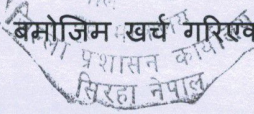 बमोजिम खर्च गरिएक
प्रशासन कार्यालय
सिरहा नेपाल